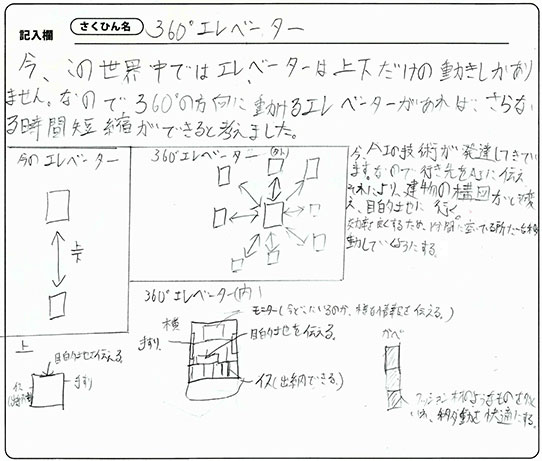 記入欄
さくひん名
360°エレベーター
今、この世界中ではエレベーターは上下だけの動きしかあり
ません。なので360°の方向に動けるエレベーターがあれば、さらな
る時間短縮ができると考えました。
今のエレベーター
上下
360°エレベーター(外)
今、AIの技術が発達してきてい
ます。なので行き先をAIに伝え
それにより、建物の構図が変
え、目的地に行く
効率を良くするため、
動していくようにする。
360°エレベーター(内)
モニター(今どこにいるのか、様々な情報を伝える。)
目的地を伝える。
横
手すり
イス(出納できる。)
上
目的地を伝える。
手すり
イス
かべ
クッション材のようなものを
移動を快適にする。